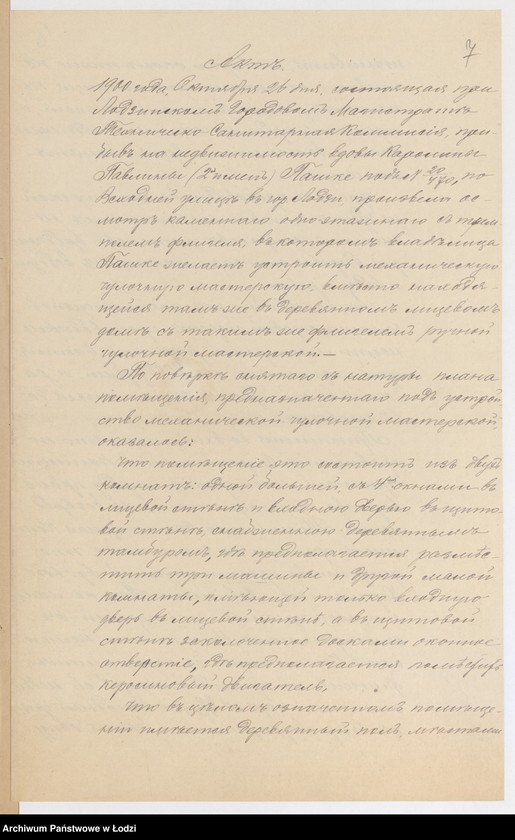 7
Актъ.
1900 года, Октября 26 дня, состоящая при
Лодзинскомъ Городовомъ Магистратѣ
Техническо-Санитарная Коммисія, при-
бывъ на недвижимость вдовы Каролины
Павлины (2хъ именъ) Пашке подъ № 20/470, по
Всходней улицѣ въ гор. Лодзи, произвела ос-
мотръ каменнаго одно-этажнаго съ
флигеля, въ которомъ владѣлица
Пашке желаетъ устроить механическую
чулочную мастерскую, вмѣсто находя-
щейся тамъ же въ деревянномъ лицевомъ
домѣ съ такимъ же флигелемъ ручной
чулочной мастерской.—
По повѣркѣ снятаго съ натуры плана
помѣщенія, предназначеннаго подъ устрой
ство механической чулочной мастерской,
оказалось:
Что помѣщеніе это состоитъ изъ двухъ
комнатъ: одной большей, съ окнами въ
лицевой стѣнѣ и входною дверью въ щито-
вой стѣнѣ, снабженною деревяннымъ
тамбуромъ, гдѣ предполагается размѣс-
тить три машины и другой малой
комнаты, имѣющей только входную
дверь въ лицевой стѣнѣ, а въ щитовой
стѣнѣ заколоченное досками оконное
отверстіе, гдѣ предполагается помѣстить
керосиновый двигатель,
Что въ цѣломъ означенномъ помѣще-
ніи имѣется деревянный полъ, мѣстами
Archiwum Państwowe w Łodzi